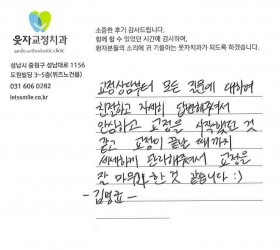 소중한 후기 감사드립니다.
함께 할 수 있었던 시간에 감사하며,
환자분들의 소리에 귀 기울이는 웃자치과가 되도록 하겠습니다.
웃자교정치과
성남시 중원구 성남대로 1156
도현빌딩 3~5층(위즈노건물)
031 606 0282
letssmile.co.kr
교정상담부터 모든 진료에 대하여
친절하고 자세히 답변해주셔서
안심하고 교정을 시작했던 것
같고 교정이 끝날 때까지
세세하게 관리해주셔서 교정을
잘 마무리 한 것 같습니다 :)
- 김병균 -